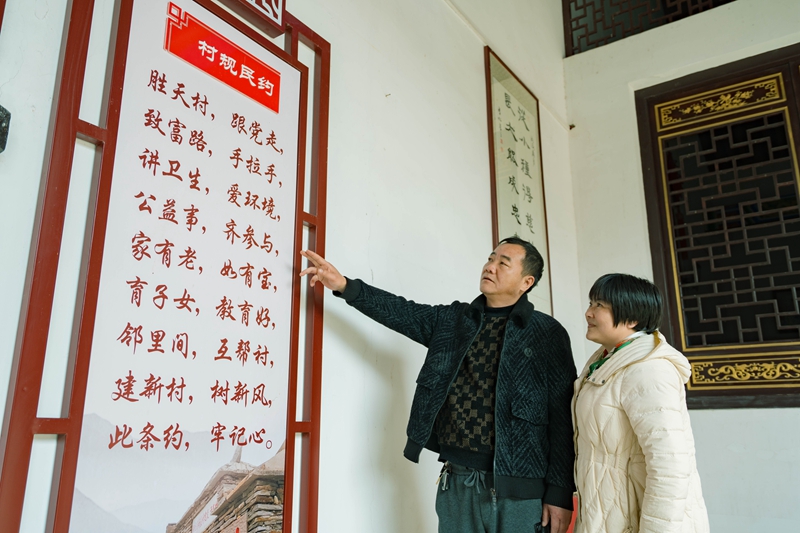 村规民约
胜天村，跟党走，
致富路，手拉手，
讲卫生，爱环境，
公益事，齐参与，
家有老，如有宝，
育子女，教育好，
邻里间，互帮讨，
建新村，树新风，
此条约，牢记心。